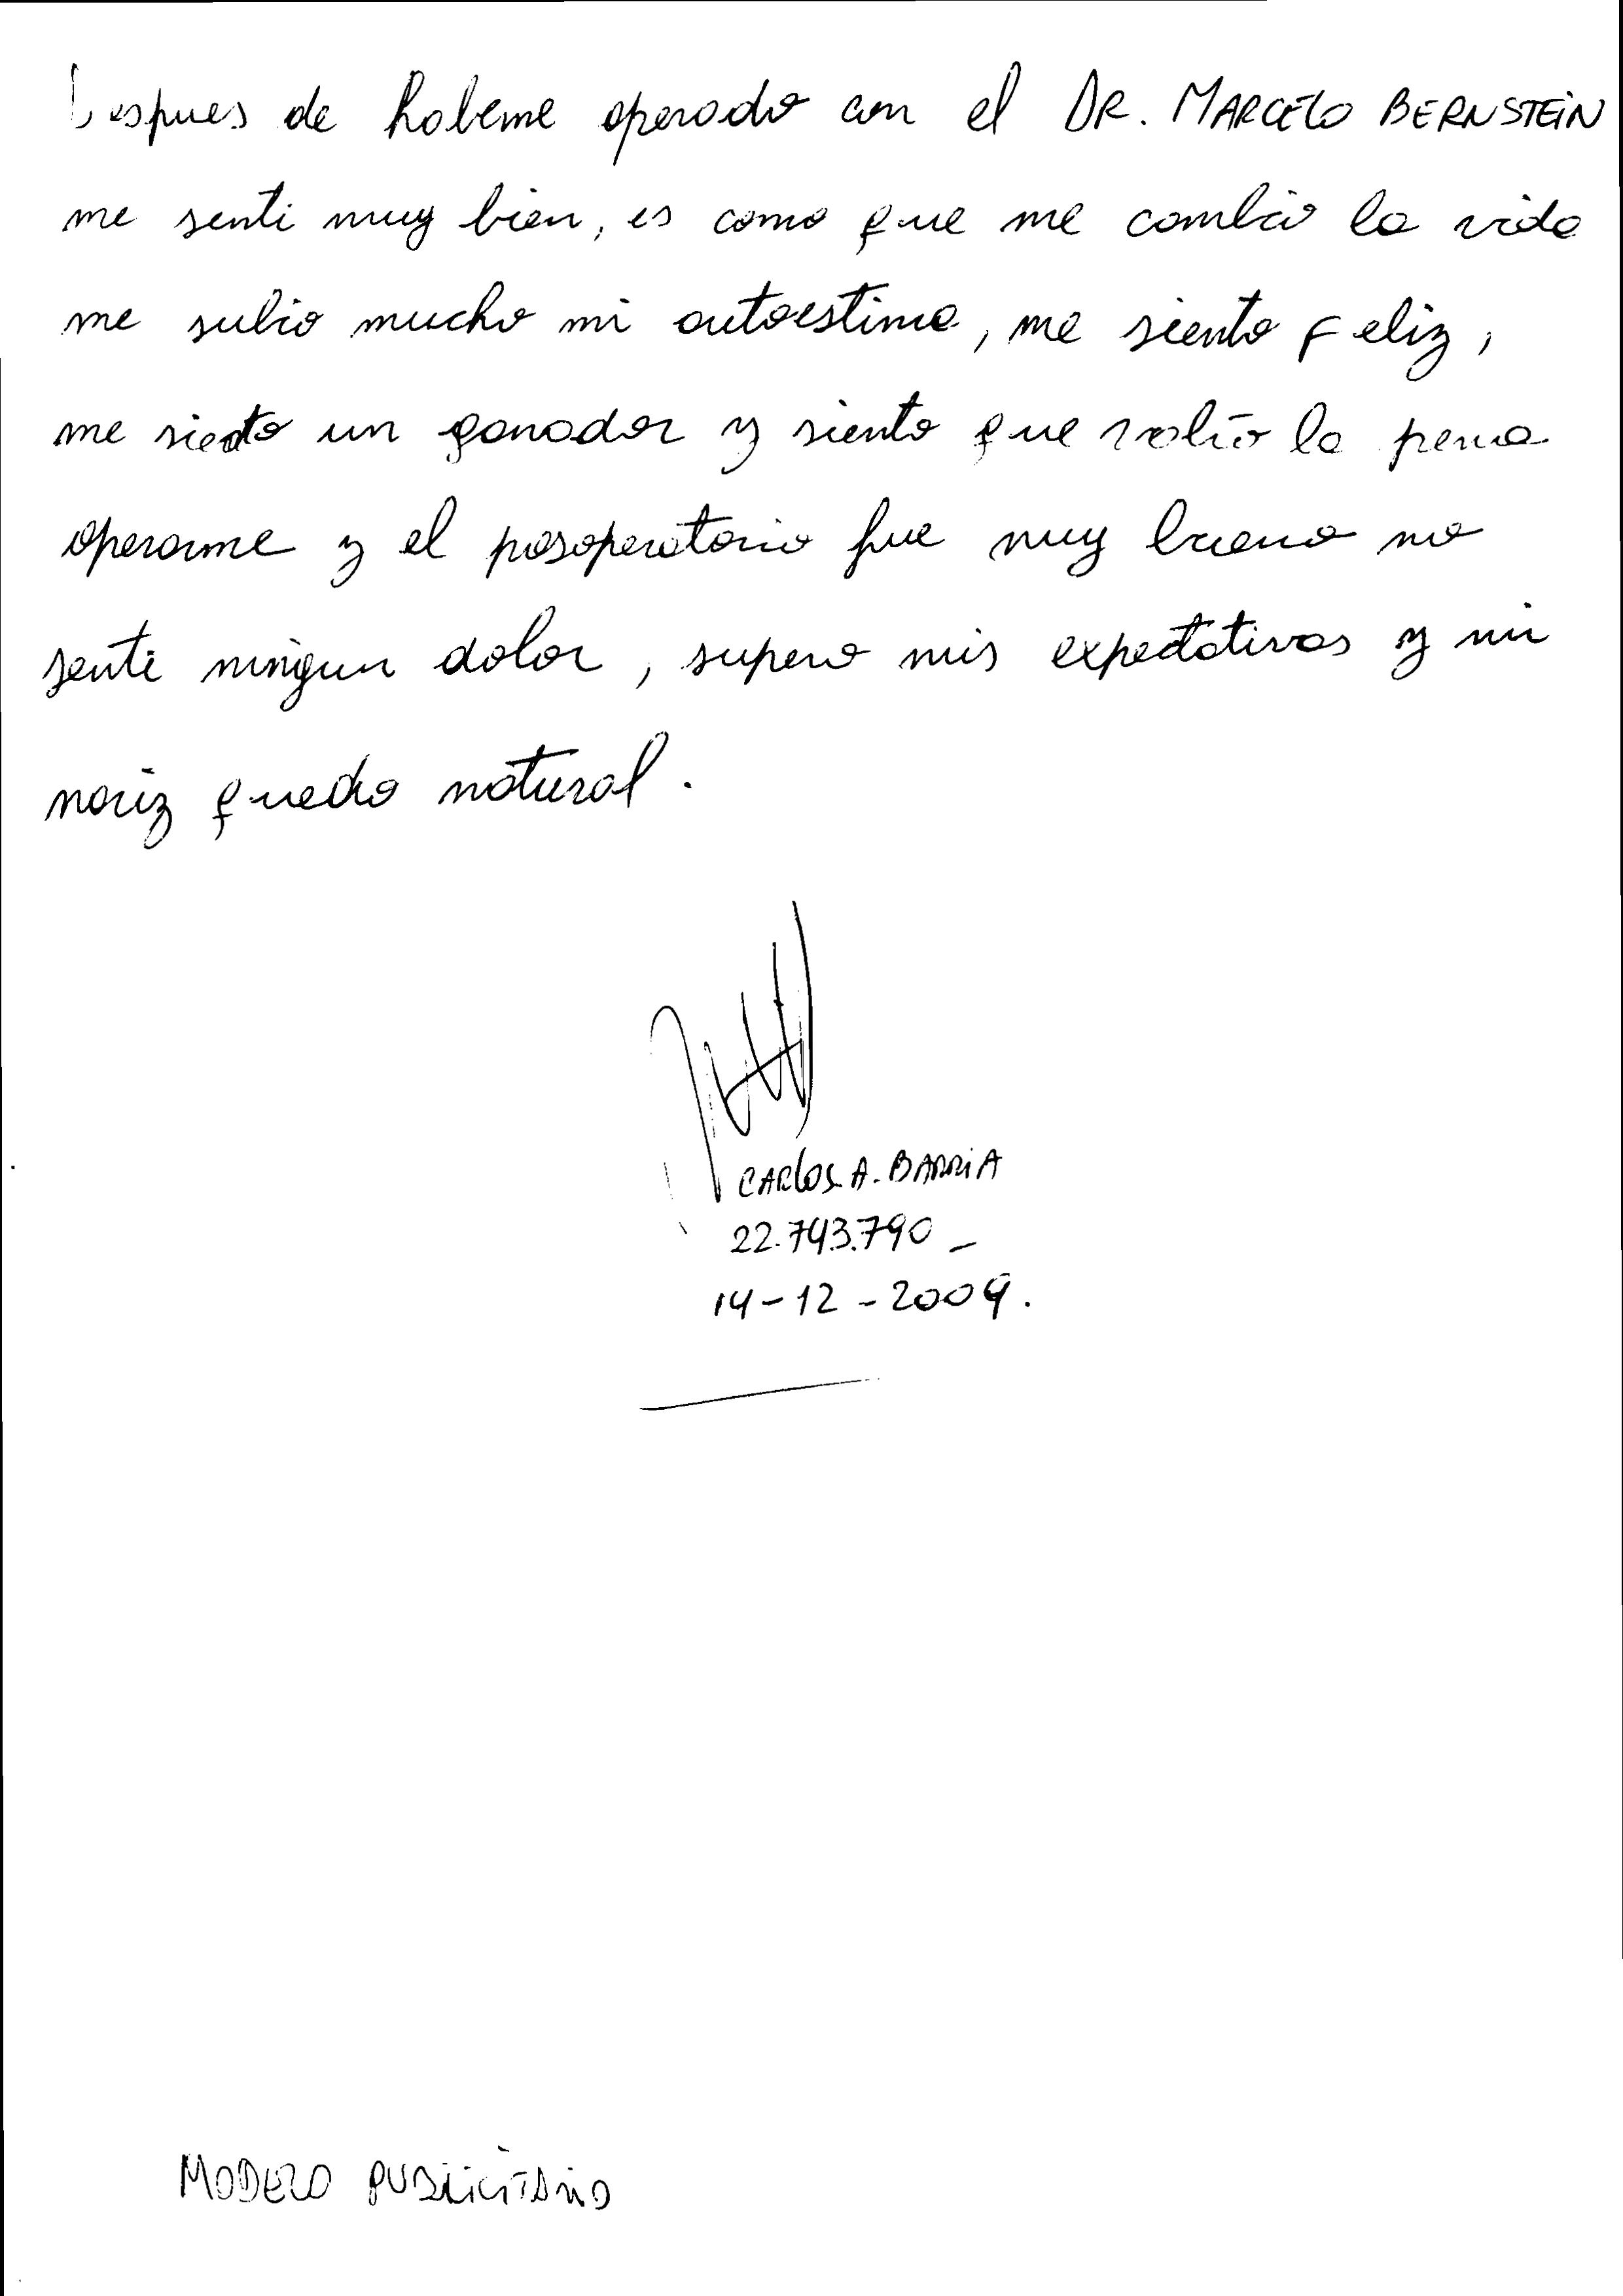 Despues de haberme operado con el DR. MARCELO BERNSTEIN
me senti muy bien, es como que me cambio la vida
me subio mucho mi autoestima, me siento feliz,
me siento un ganador y siento que valio la pena
operarme y el posoperatorio fue muy bueno no
senti ningun dolor, supero mis expectativas y mi
nariz quedo natural.
CARLOS A. BARRIA
22.743.790 -
14-12-2009.
MODELO PUBLICITARIO